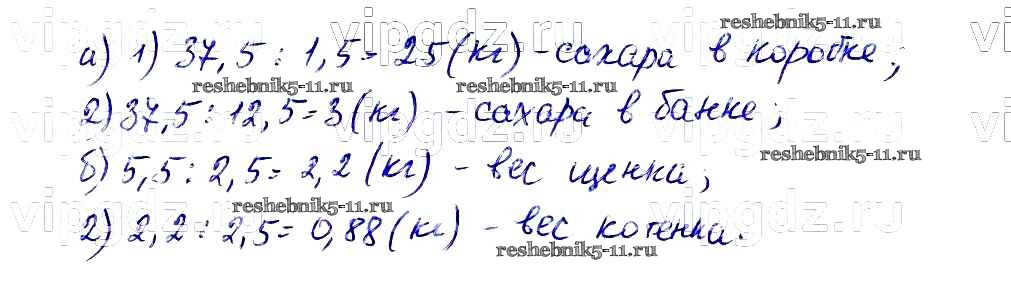 reshebnik5-11.ru
vipgdz.ru vipgdz.ru vipgdz.ru
а) 1) 37,5 : 1,5 = 25 (кг) - сахара в коробке;
reshebnik5-11.ru reshebnik5-11.ru
2) 37,5 : 12,5 = 3 (кг) - сахара в банке;
vipgdz.ru vipgdz.ru vipgdz.ru
reshebnik5-11.ru
б) 5,5 : 2,5 = 2,2 (кг) - вес щенка;
reshebnik5-11.ru
vipgdz.ru vipgdz.ru vipgdz.ru
2) 2,2 : 2,5 = 0,88 (кг) - вес котенка.
reshebnik5-11.ru